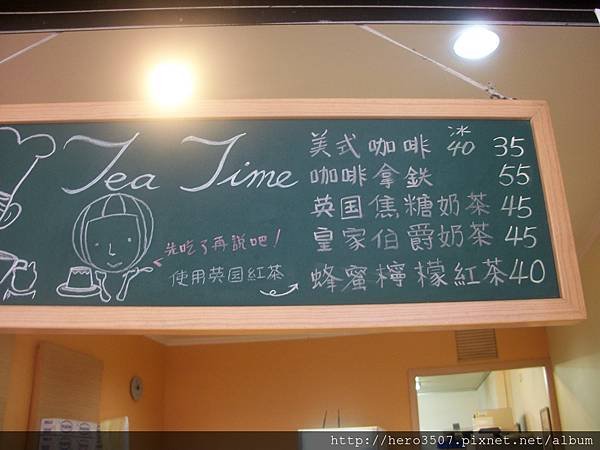 Tea Time
先吃了再說吧！
使用英国紅茶
美式咖啡 冰40 35
咖啡拿鉄 55
英国焦糖奶茶 45
皇家伯爵奶茶 45
蜂蜜檸檬紅茶 40
http://hero3507.pixnet.net/album